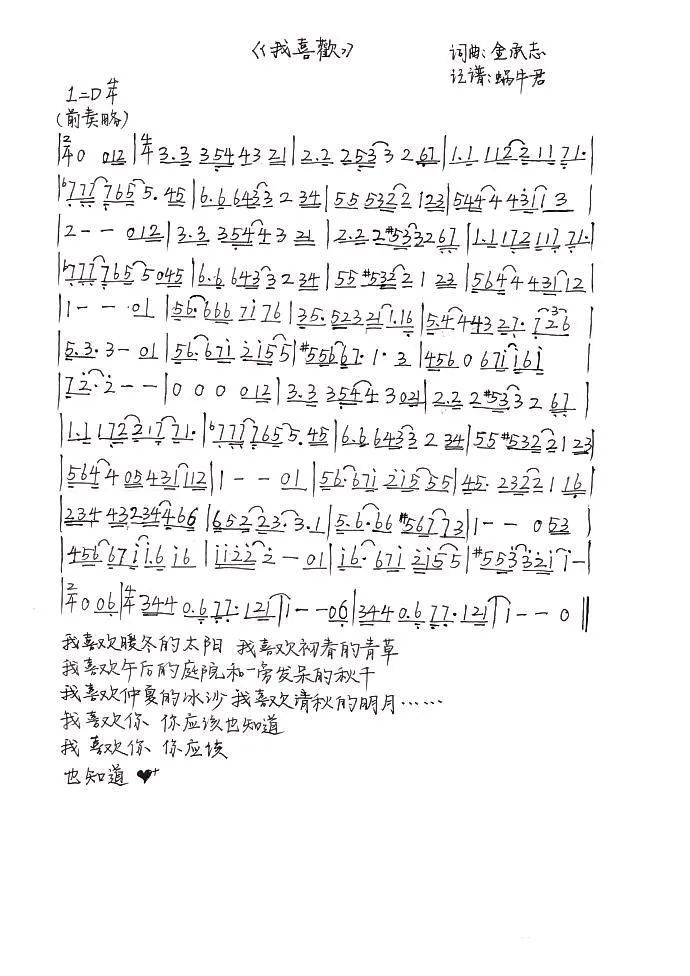 《我喜歡》
词曲:金承志
记谱:蜗牛君
1=D 4/4
(前奏略)
|2/4 0 012|4/4 3.3 354 43 21|2.2 2533 2 67|1.1 1122117 71.|
b777 7655. 45|6.6 6433 2 34|55 5322 123|544443 11 3|
2 - - 012|3.3 35443 21|2.2 2#533267|1.1 1721171 71.|
b777 7655045|6.6 6433 2 34|55 #5322 1 23|5644 431112|
1 - - 01|56.666 7176|35.5232111.16|5.44432 7. 726|
5.3.3 - 01|56.671 2155|#55667.1.3|456 0 671161|
72.2 - -|0 0 0 012|3.3 3544 3021|2.2 2#533 2 67|
1.1 1722171 71.|b77777655.45|6.6 6433 2 34|55#5322123|
5644 05431112|1 - - 01|56.671 215555|45.2322116|
234 43234466|65.2223.3.1|5.6.66 #56773|1 - - 0 53|
456671 1.616|11222 - 01|16.671 2155|#553321 1 -|
2/4 0 06|4/4 344 0.677.121|1 - - 06|344 0.677.121|1 - - 0||
我喜欢暖冬的太阳 我喜欢初春的青草
我喜欢午后的庭院和一旁发呆的秋千
我喜欢仲夏的冰沙 我喜欢清秋的明月……
我喜欢你、你应该也知道
我喜欢你、你应该
也知道 ♥+